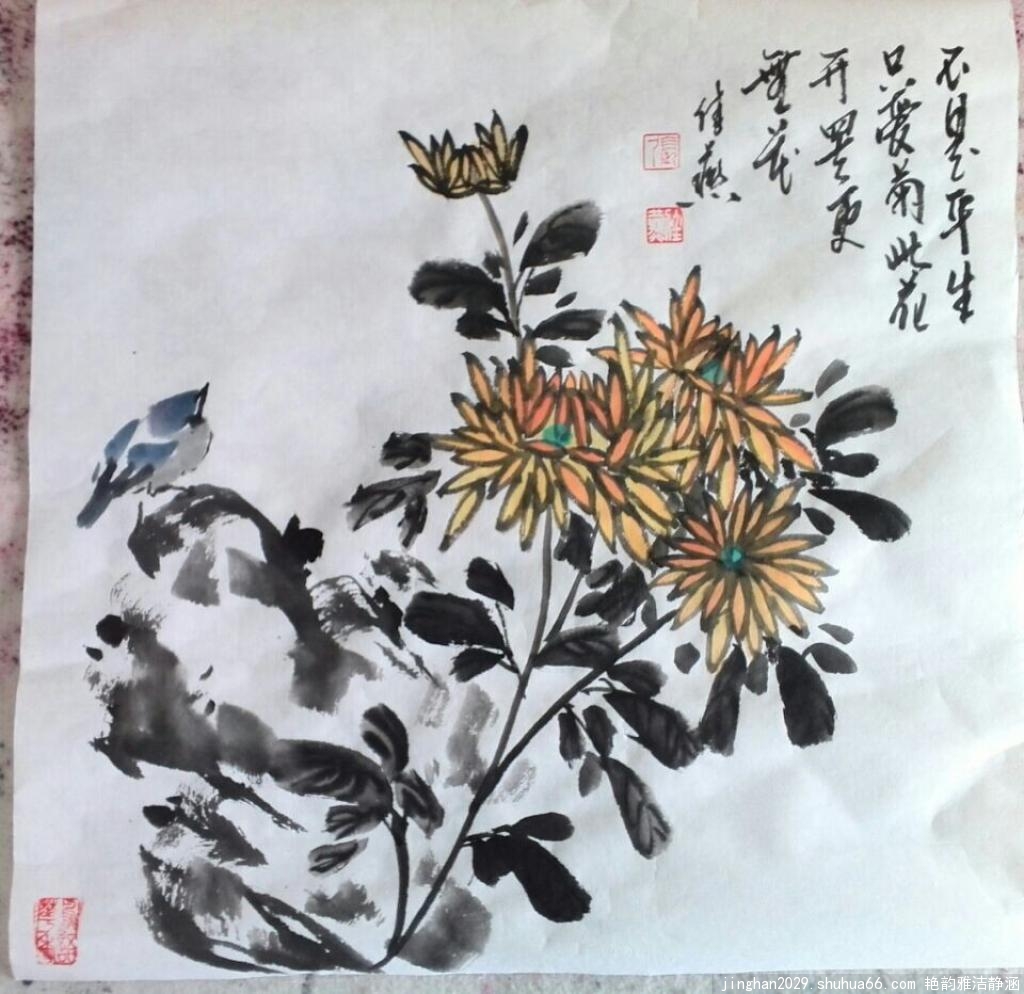 不是平生
只爱菊此花
开罢更
無花
佳燕
jinghan2029.shuhua66.com 艳韵雅洁静涵